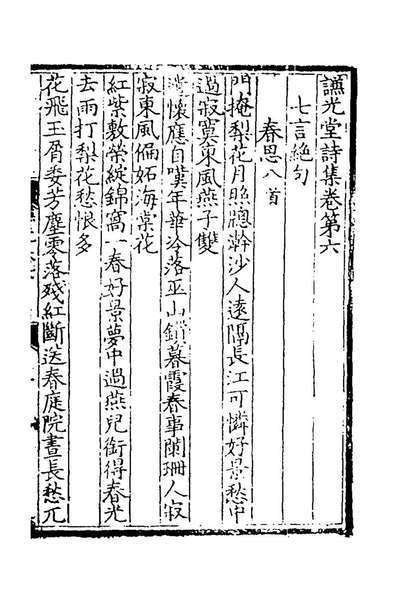 讌光堂詩集卷第六
七言絶句
春思八首
門掩梨花月照窻瀚沙人遠隔長江可憐好景愁中
過寂寞東風燕子雙
愁懷應自嘆年華冷落巫山鎖暮霞春事闌珊人寂
寂東風偏妬海棠花
紅紫敷榮綻錦窩一春好景夢中過燕兒銜得春光
去雨打梨花愁恨多
花飛玉屑委芳塵零落殘紅斷送春庭院晝長愁兀